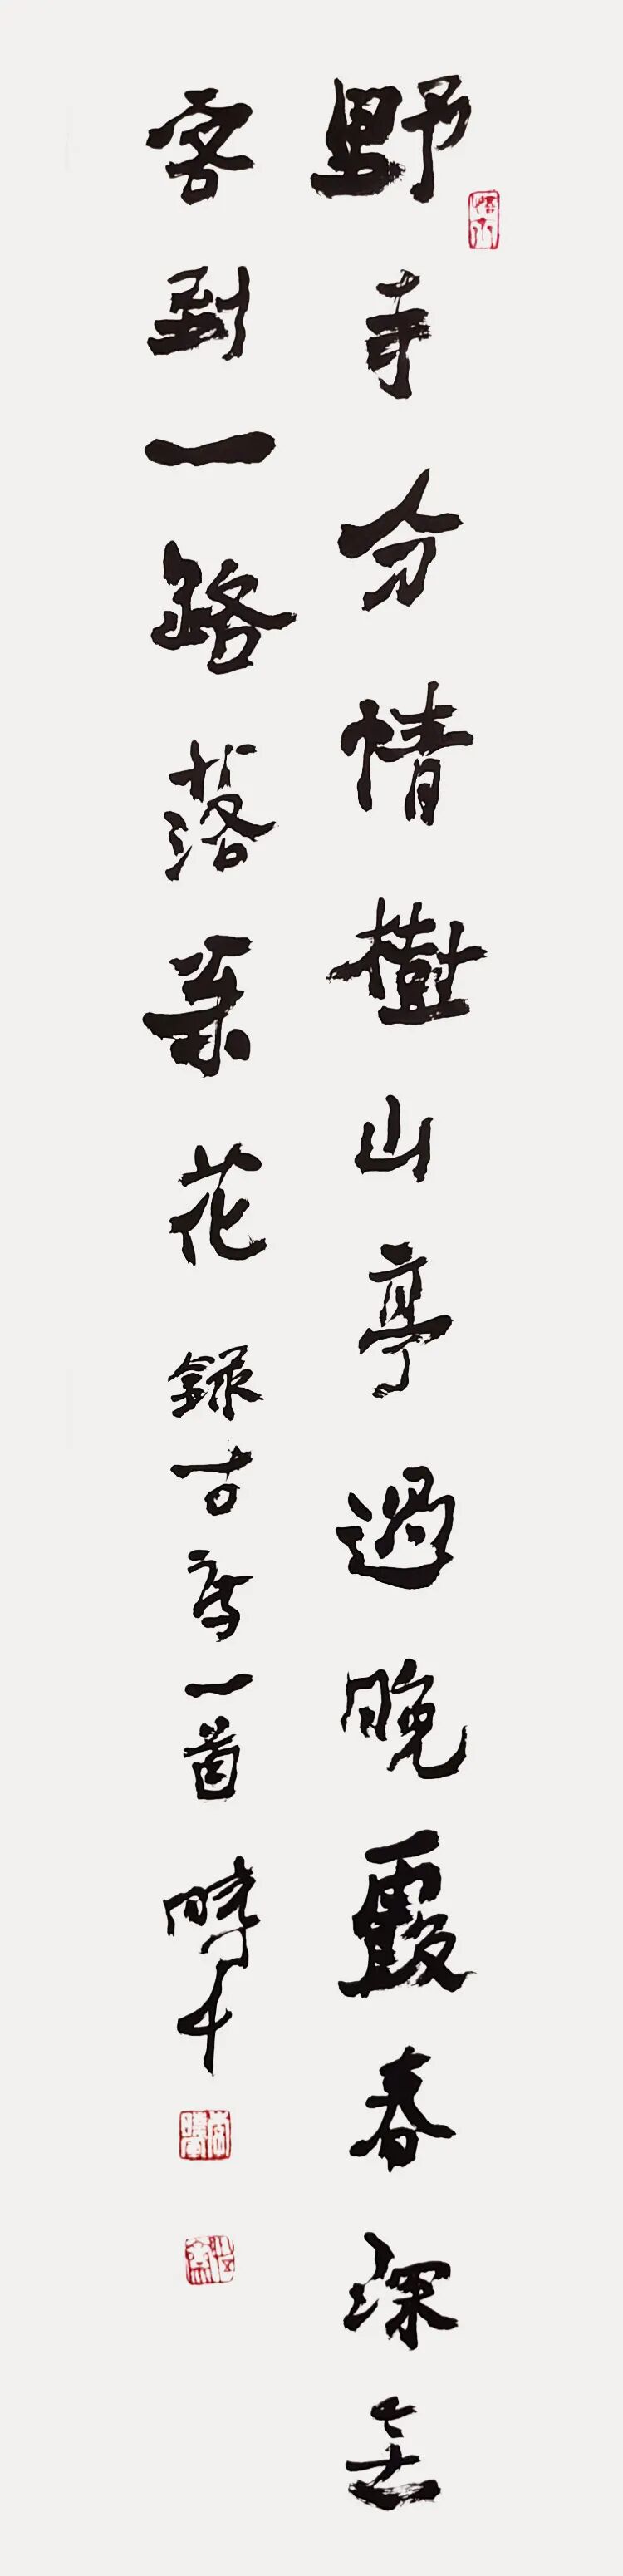 野寺分晴樹山亭過晚霞春深無
客到一路落松花 録古詩一首